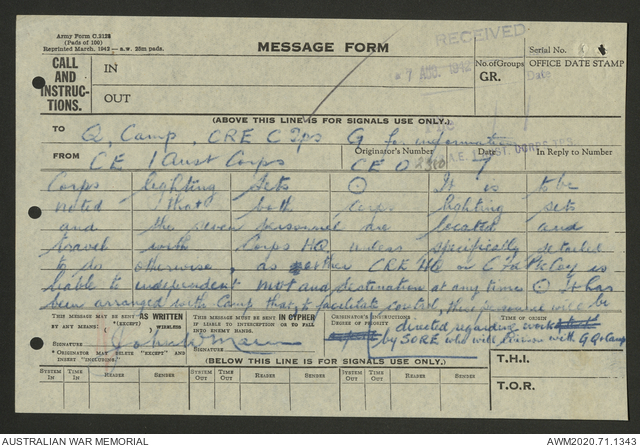 Army Form C.2128
(Pads of 100)
Reprinted March, 1942—a.w. 20m pads.
MESSAGE FORM
RECEIVED
7 AUG. 1942
Serial No.
CALL
AND
INSTRUC-
TIONS.
IN
OUT
No. of Groups
GR.
OFFICE DATE STAMP
Date
(ABOVE THIS LINE IS FOR SIGNALS USE ONLY.)
TO
Q, Camp, CRE C Tps G for information
FROM
CE 1 Aust Corps
Originator's Number
CE O 2300
Date
7
In Reply to Number
Corps lighting sets ⊙ It is to be
noted that both corps lighting sets
and the seven personnel are located and
travel with Corps HQ unless specifically detailed
to do otherwise, as either CRE HQ or C Fd Pk Coy is
liable to independent mot and destination at any time ⊙ It has
been arranged with Camp that, to facilitate control, these personnel will be
directed regarding work
by SORE who will liaison with G Q & Camp
THIS MESSAGE MAY BE SENT AS WRITTEN
BY ANY MEANS. (EXCEPT) WIRELESS
SIGNATURE
* ORIGINATOR MAY DELETE "EXCEPT" AND
INSERT "INCLUDING."
THIS MESSAGE MUST BE SENT IN CYPHER
IF LIABLE TO INTERCEPTION OR TO FALL
INTO ENEMY HANDS.
SIGNATURE
ORIGINATOR'S INSTRUCTIONS
DEGREE OF PRIORITY
TIME OF ORIGIN
T.H.I.
T.O.R.
(BELOW THIS LINE IS FOR SIGNALS USE ONLY.)
SYSTEM IN
TIME IN
READER
SENDER
SYSTEM OUT
TIME OUT
READER
SENDER
SYSTEM OUT
TIME OUT
READER
SENDER
AUSTRALIAN WAR MEMORIAL
AWM2020.71.1343